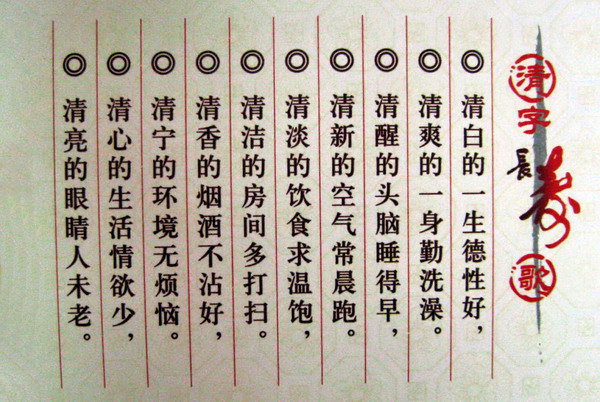 清字長寿歌
◎清白的一生德性好，
◎清爽的一身勤洗澡。
◎清醒的头脑睡得早，
◎清新的空气常晨跑。
◎清淡的饮食求温饱，
◎清洁的房间多打扫。
◎清香的烟酒不沾好，
◎清宁的环境无烦恼。
◎清心的生活情欲少，
◎清亮的眼睛人未老。